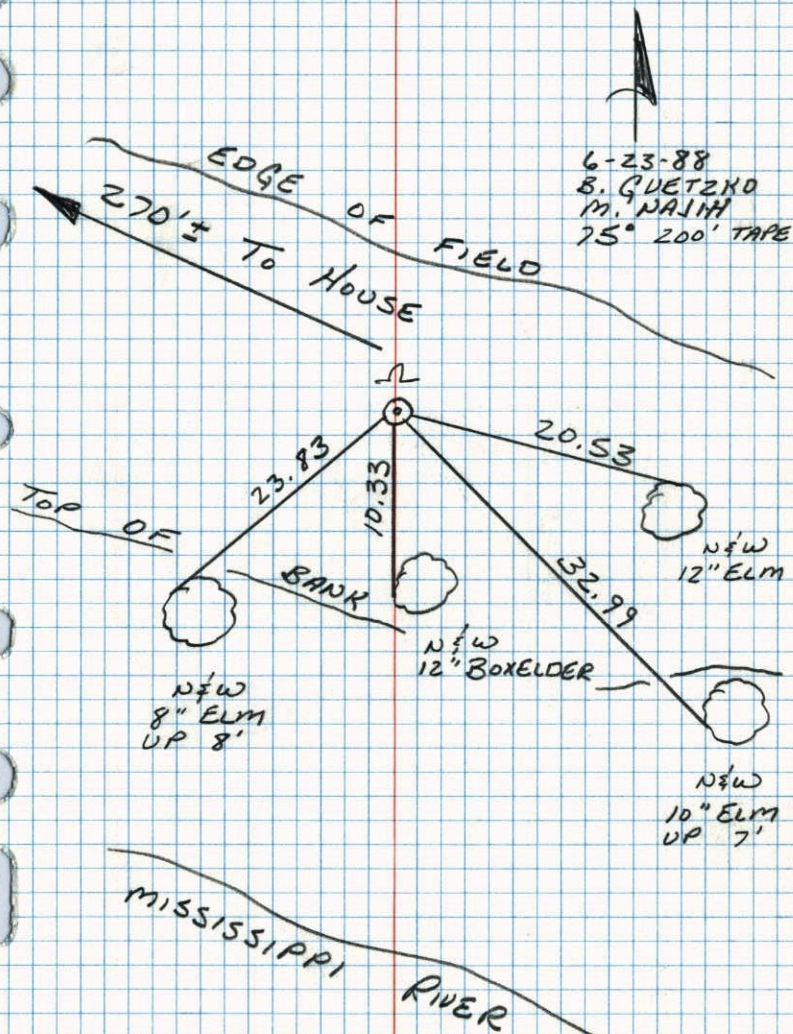 6-23-88
B. GUETZKO
M.
75° 200' TAPE
EDGE OF FIELD
270'± TO HOUSE
23.83
10.33
20.53
32.99
TOP OF BANK
N&W
12" ELM
N&W
12" BOXELDER
N&W
8" ELM
UP 8'
N&W
10" ELM
UP 7'
MISSISSIPPI RIVER